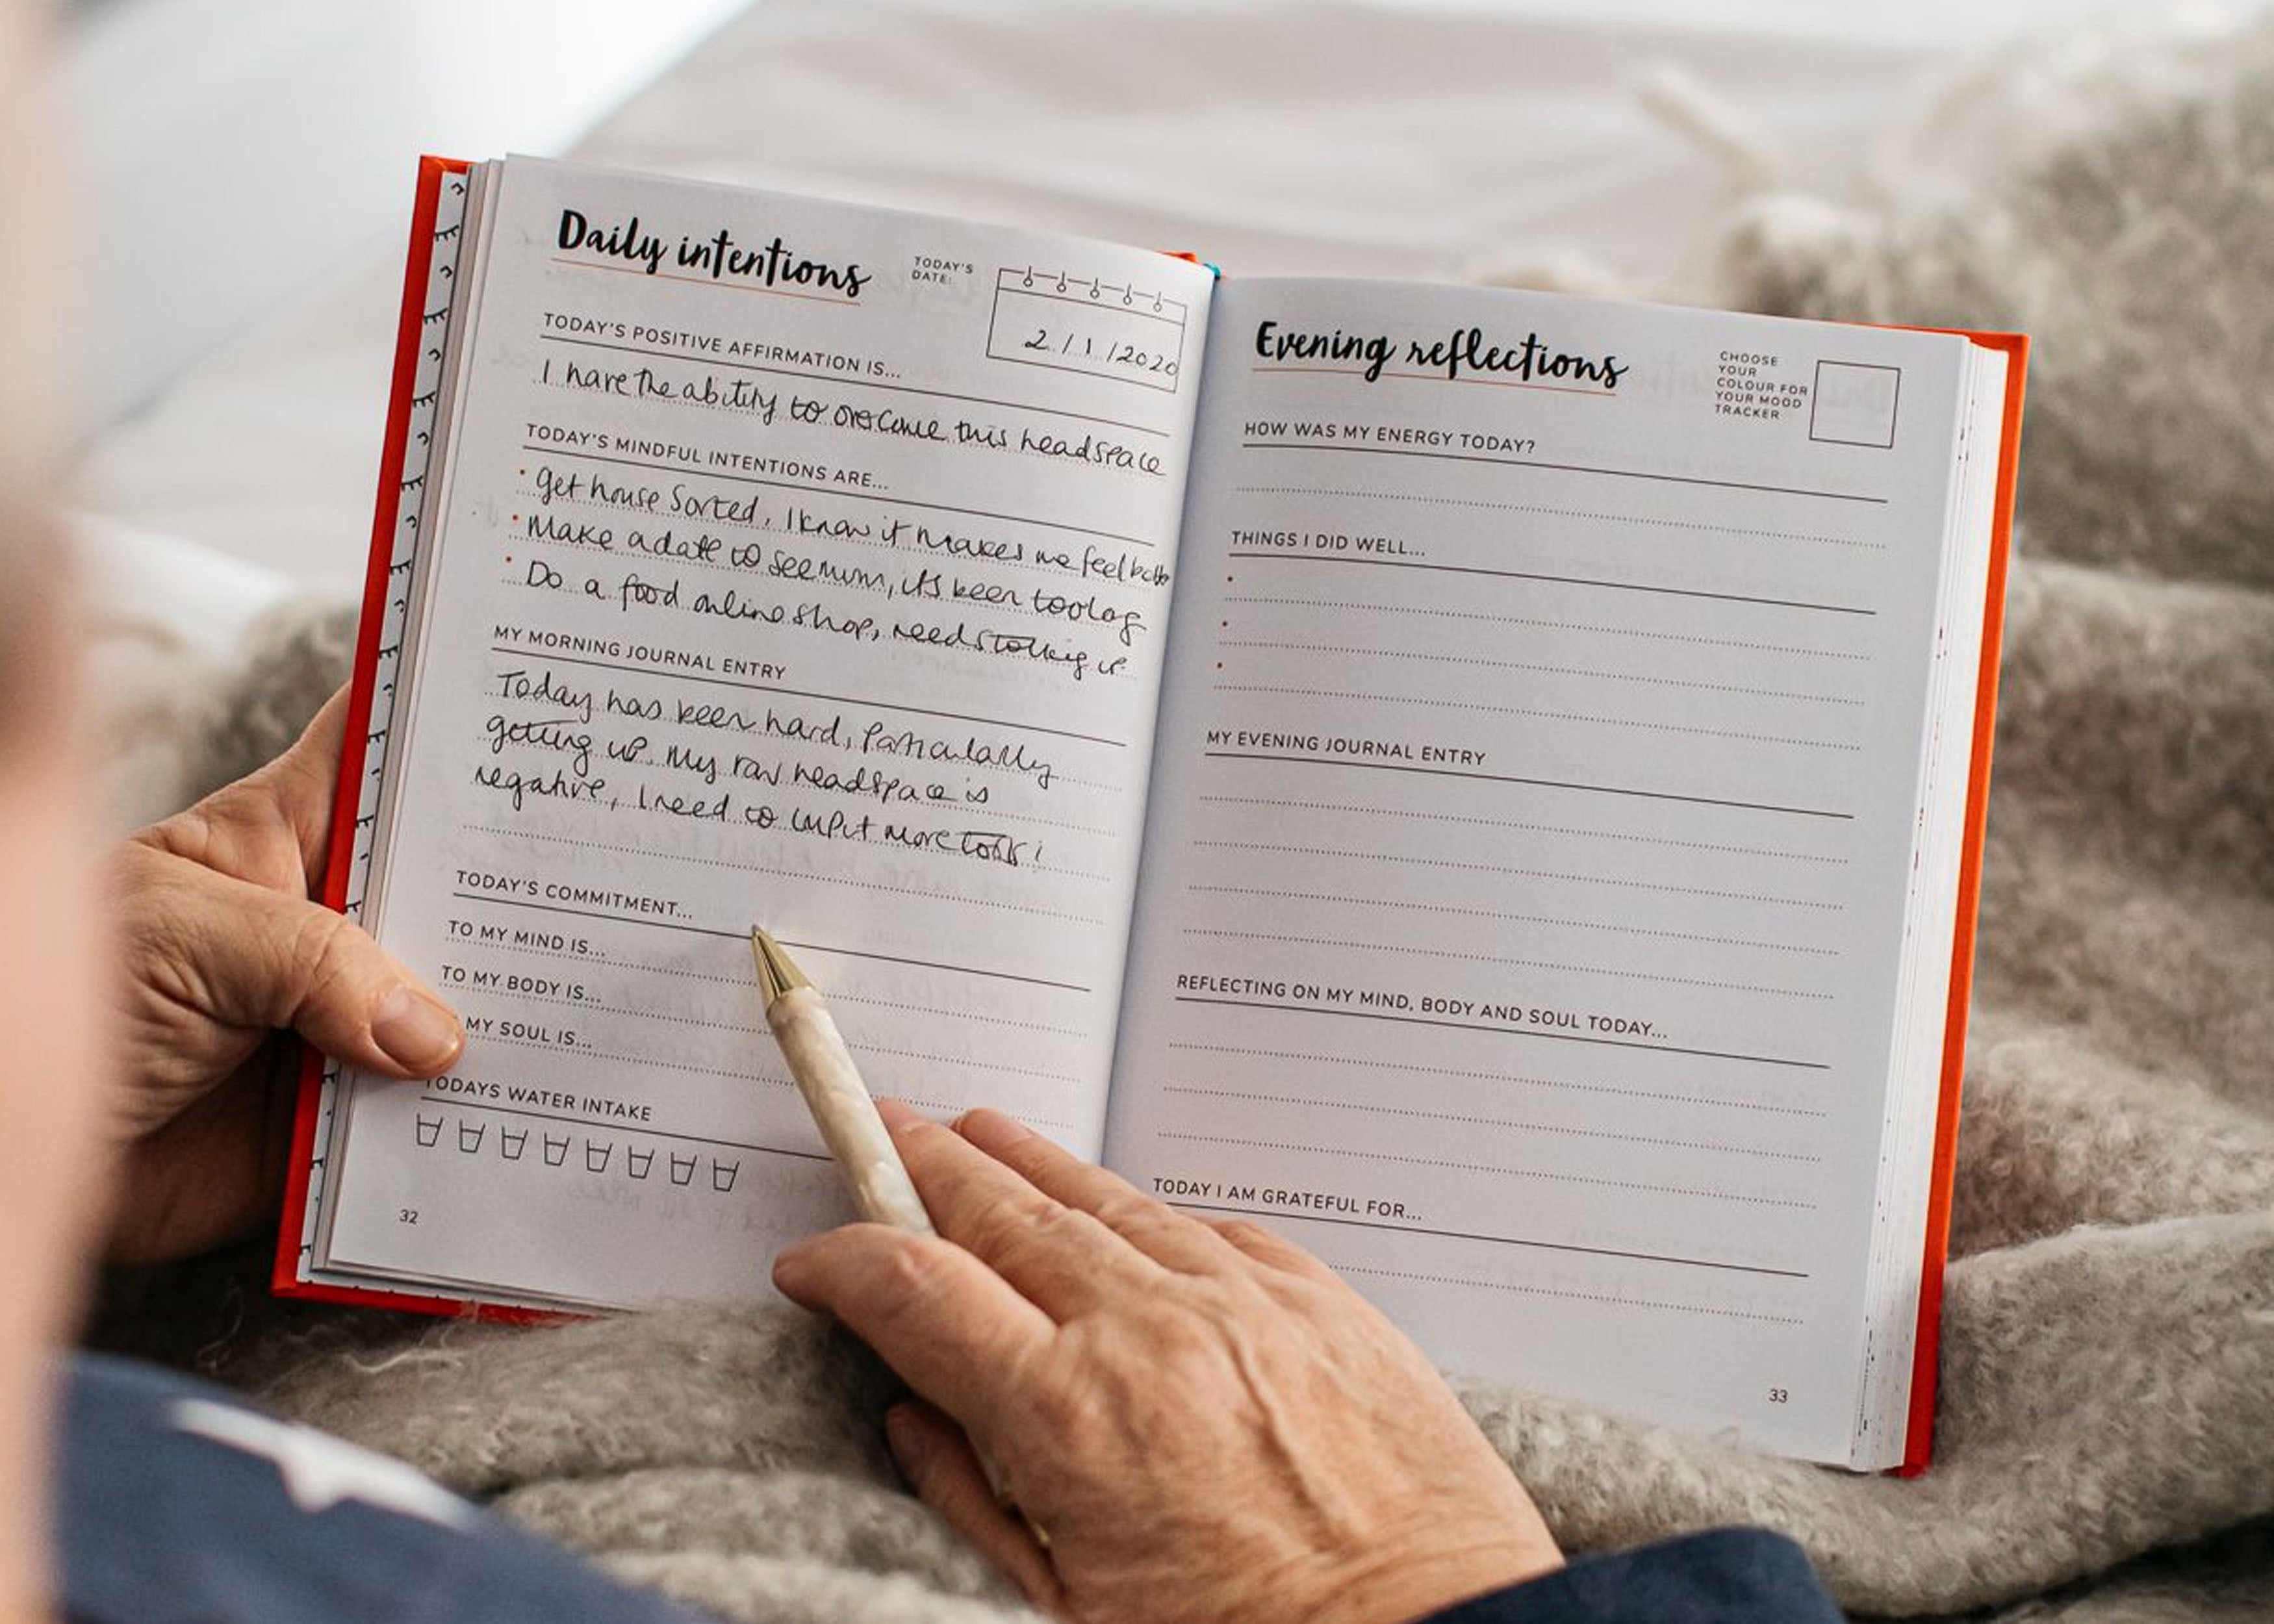 Daily intentions
TODAY'S
DATE:
2/1/2020
TODAY'S POSITIVE AFFIRMATION IS...
I have the ability to overcome this headspace
TODAY'S MINDFUL INTENTIONS ARE...
• get house sorted, I know it makes me feel
• Make a date to see mum, its been too
• Do a food online shop, need
MY MORNING JOURNAL ENTRY
Today has been hard, particularly
getting up. My raw headspace is
negative, I need to input more tools!
TODAY'S COMMITMENT...
TO MY MIND IS...
TO MY BODY IS...
MY SOUL IS...
TODAYS WATER INTAKE
32
Evening reflections
CHOOSE
YOUR
COLOUR FOR
YOUR MOOD
TRACKER
HOW WAS MY ENERGY TODAY?
THINGS I DID WELL...
MY EVENING JOURNAL ENTRY
REFLECTING ON MY MIND, BODY AND SOUL TODAY...
TODAY I AM GRATEFUL FOR...
33